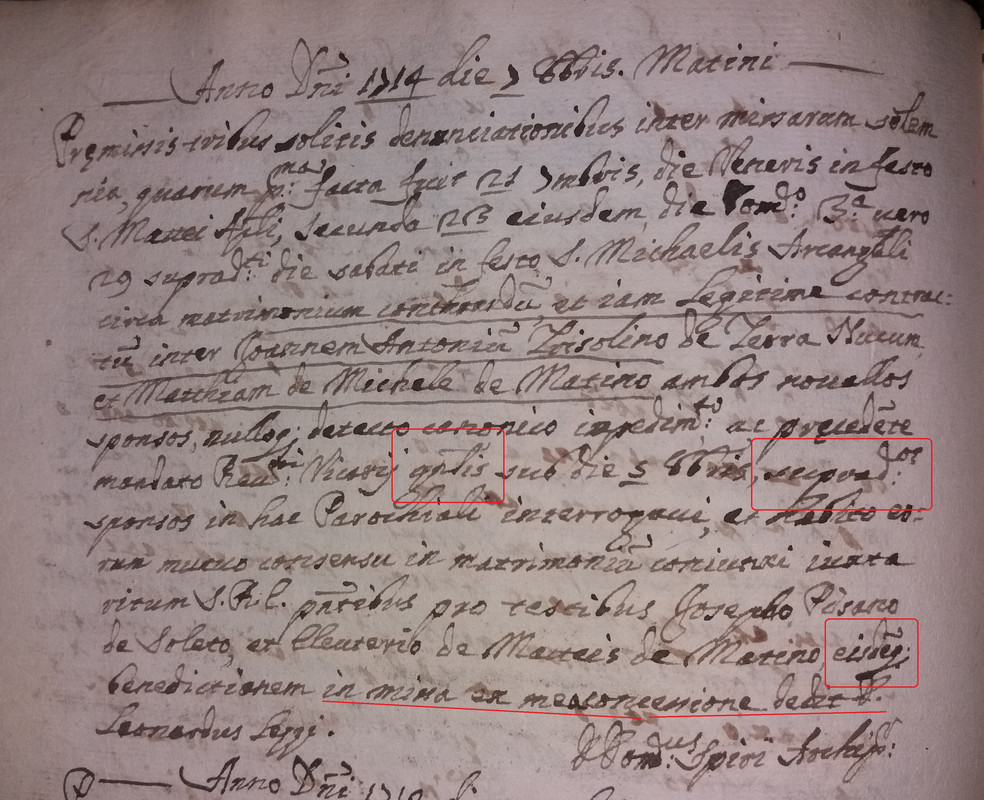 Anno Dñi 1714 die 7 8bris. Matini
Premissis tribus solitis denunciationibus inter missarum solem
nia, quarum p:ma facta fuit 21 7mbris, die Veneris in festo
S. Mattei Apli, secunda 23 eiusdem die Domco: 3:a uero
29 supradti: die sabati in festo S. Michaelis Arcangeli
circa matrimonium contrahendũ, et iam legitime contrac:
tũ inter Joannem Antoniũ Trisolino de Terra Nucum
et Matthiam de Michele de Matino ambos nouellos
sponsos, nulloq; detecto canonico impedim:to ac precedẽte
mandato Reu:di Vicarij gñlis sub die 5 8bris, suprad:os
sponsos in hac Parochiali interrogaui, et habito eo:
rum mutuo consensu in matrimoniũ coniunxi iuxta
ritum S.R.E. pñtibus pro testibus Josepho Pisano
de Soleto, et Eleuterio de Matteis de Matino, eisdẽq;
benedictionem in missa ex mea concessione dedit D.
Leonardus Leggi.
D Dom:us Spiri Archip:
Anno Dñi